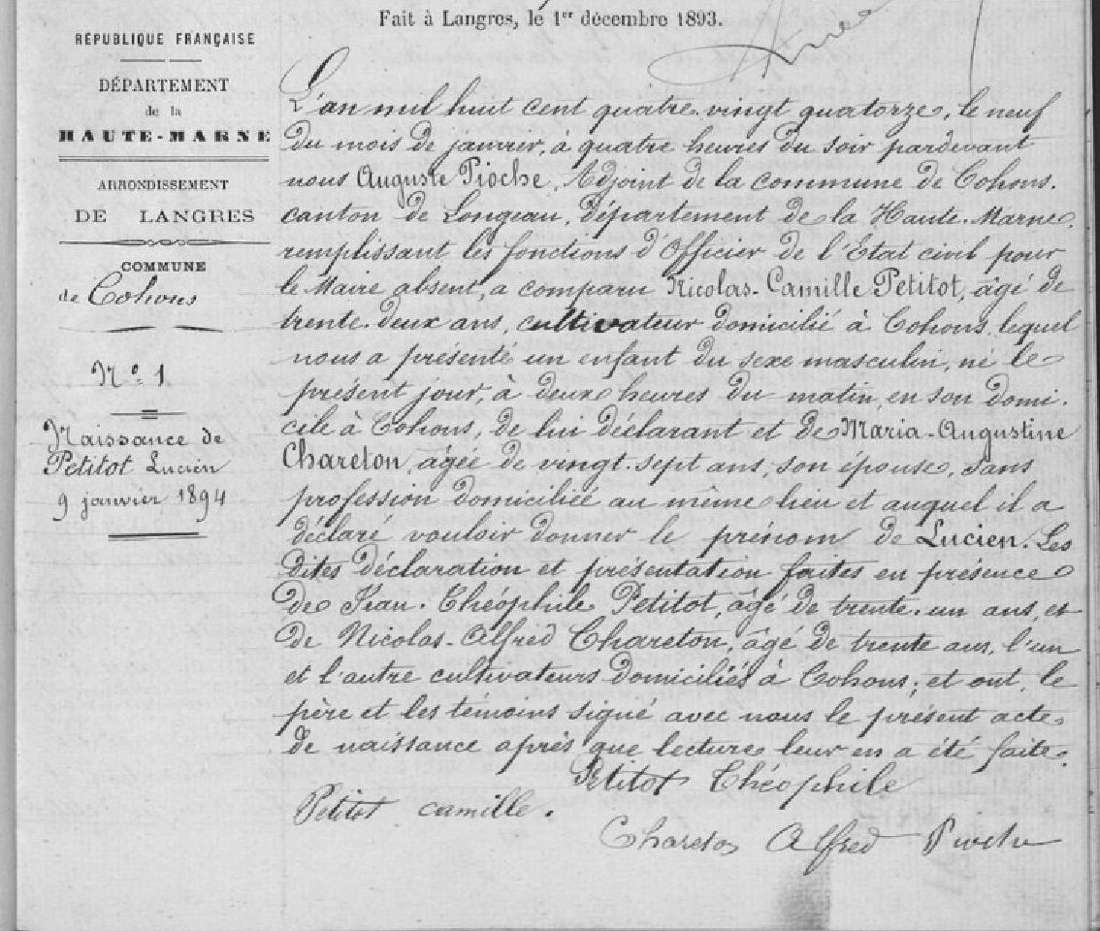 Fait à Langres, le 1er décembre 1893.
RÉPUBLIQUE FRANÇAISE
DÉPARTEMENT
de la
HAUTE-MARNE
ARRONDISSEMENT
DE LANGRES
COMMUNE
de Cohons
N° 1
Naissance de
Petitot Lucien
9 janvier 1894
L'an mil huit cent quatre-vingt quatorze, le neuf
du mois de janvier, à quatre heures du soir pardevant
nous Auguste Pioche, Adjoint de la commune de Cohons,
canton de Longeau, département de la Haute-Marne,
remplissant les fonctions d'Officier de l'Etat civil pour
le Maire absent, a comparu Nicolas-Camille Petitot, âgé de
trente-deux ans, cultivateur domicilié à Cohons, lequel
nous a présenté un enfant du sexe masculin, né le
présent jour, à deux heures du matin, en son domi-
cile à Cohons, de lui déclarant et de Maria-Augustine
Chareton, âgée de vingt-sept ans, son épouse, sans
profession domiciliée au même lieu et auquel il a
déclaré vouloir donner le prénom de Lucien. Les
dites déclaration et présentation faites en présence
de Jean-Théophile Petitot, âgé de trente-un ans, et
de Nicolas-Alfred Chareton, âgé de trente ans, l'un
et l'autre cultivateurs domiciliés à Cohons; et ont, le
père et les témoins signé avec nous le présent acte
de naissance après que lecture leur en a été faite.
Petitot Théophile
Petitot Camille.
Chareton Alfred Pioche